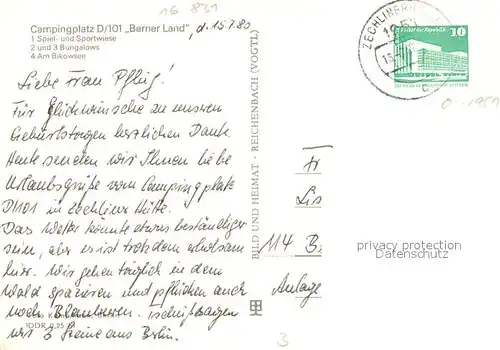 16 831
Campingplatz D/101 „Barner Land", d. 15.7.80
1 Spiel- und Sportwiese
2 und 3 Bungalows
4 Am Bikowsee
Liebe Frau Pflug!
Für Glückwünsche zu unseren
Geburtstagen herzlichen Dank.
Heute senden wir Ihnen liebe
Urlaubsgrüße vom Campingplatz
D/101 in Zechliner Hütte.
Das Wetter könnte etwas beständiger
sein, aber es ist trotzdem erholsam
hier. Wir gehen täglich in dem
Wald spazieren und pflücken auch
noch Blaubeeren.
DDR 0,25
wir 3 Steine aus Berlin.
BILD UND HEIMAT · REICHENBACH (VOGTL)
ZECHLINER
10
Fr
Lis
114 B
Anlage
3
privacy protection
Datenschutz